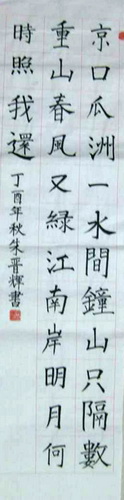 京口瓜洲一水間鐘山只隔數
重山春風又綠江南岸明月何
時照我還
丁酉年秋朱晋輝書